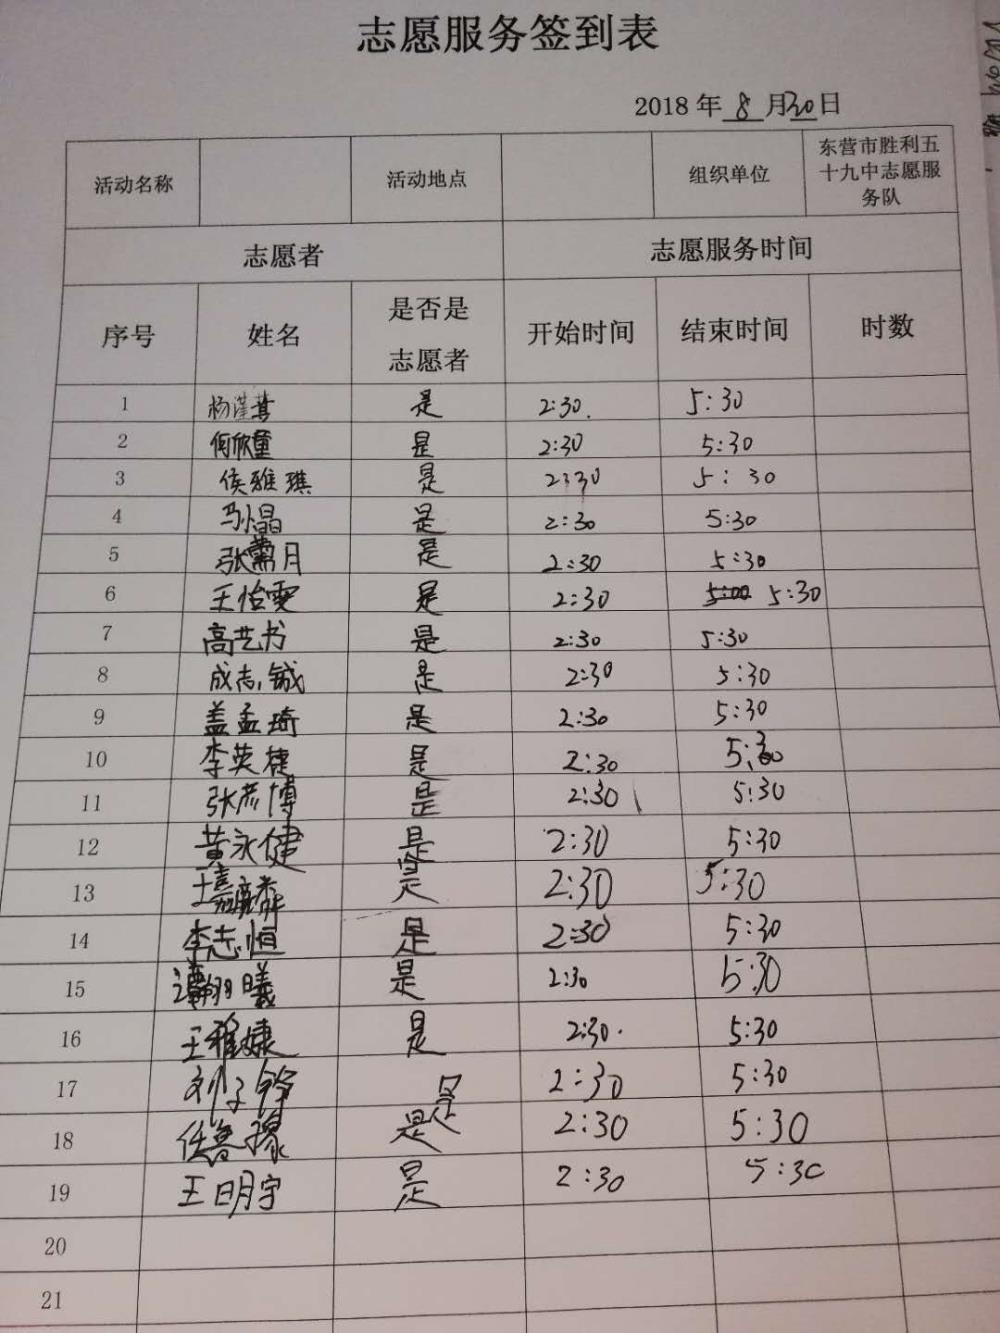 志愿服务签到表
2018年8月30日
活动名称 活动地点 组织单位 东营市胜利五
十九中志愿服
务队
志愿者 志愿服务时间
序号 姓名 是否是 开始时间 结束时间 时数
志愿者
1 杨 是 2:30. 5:30
2 何欣童 是 2:30 5:30
3 侯雅琪 是 2:30 5:30
4 马小晶 是 2:30 5:30
5 张萧月 是 2:30 5:30
6 王怡雯 是 2:30 5:30
7 高艺书 是 2:30 5:30
8 成志铖 是 2:30 5:30
9 盖孟琦 是 2:30 5:30
10 李英捷 是 2:30 5:30
11 张彦博 是 2:30 5:30
12 黄永健 是 2:30 5:30
13 王嘉麟 是 2:30 5:30
14 李志恒 是 2:30 5:30
15 谭翔曦 是 2:30 5:30
16 王雅婕 是 2:30. 5:30
17 刘子铮 是 2:30 5:30
18 任鲁豫 是 2:30 5:30
19 王明宇 是 2:30 5:30
20
21